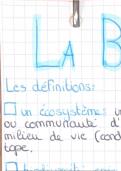 LA B
Les définitions:
un écosystème: u
ou communauté d'
milieu de vie (cond
tope.